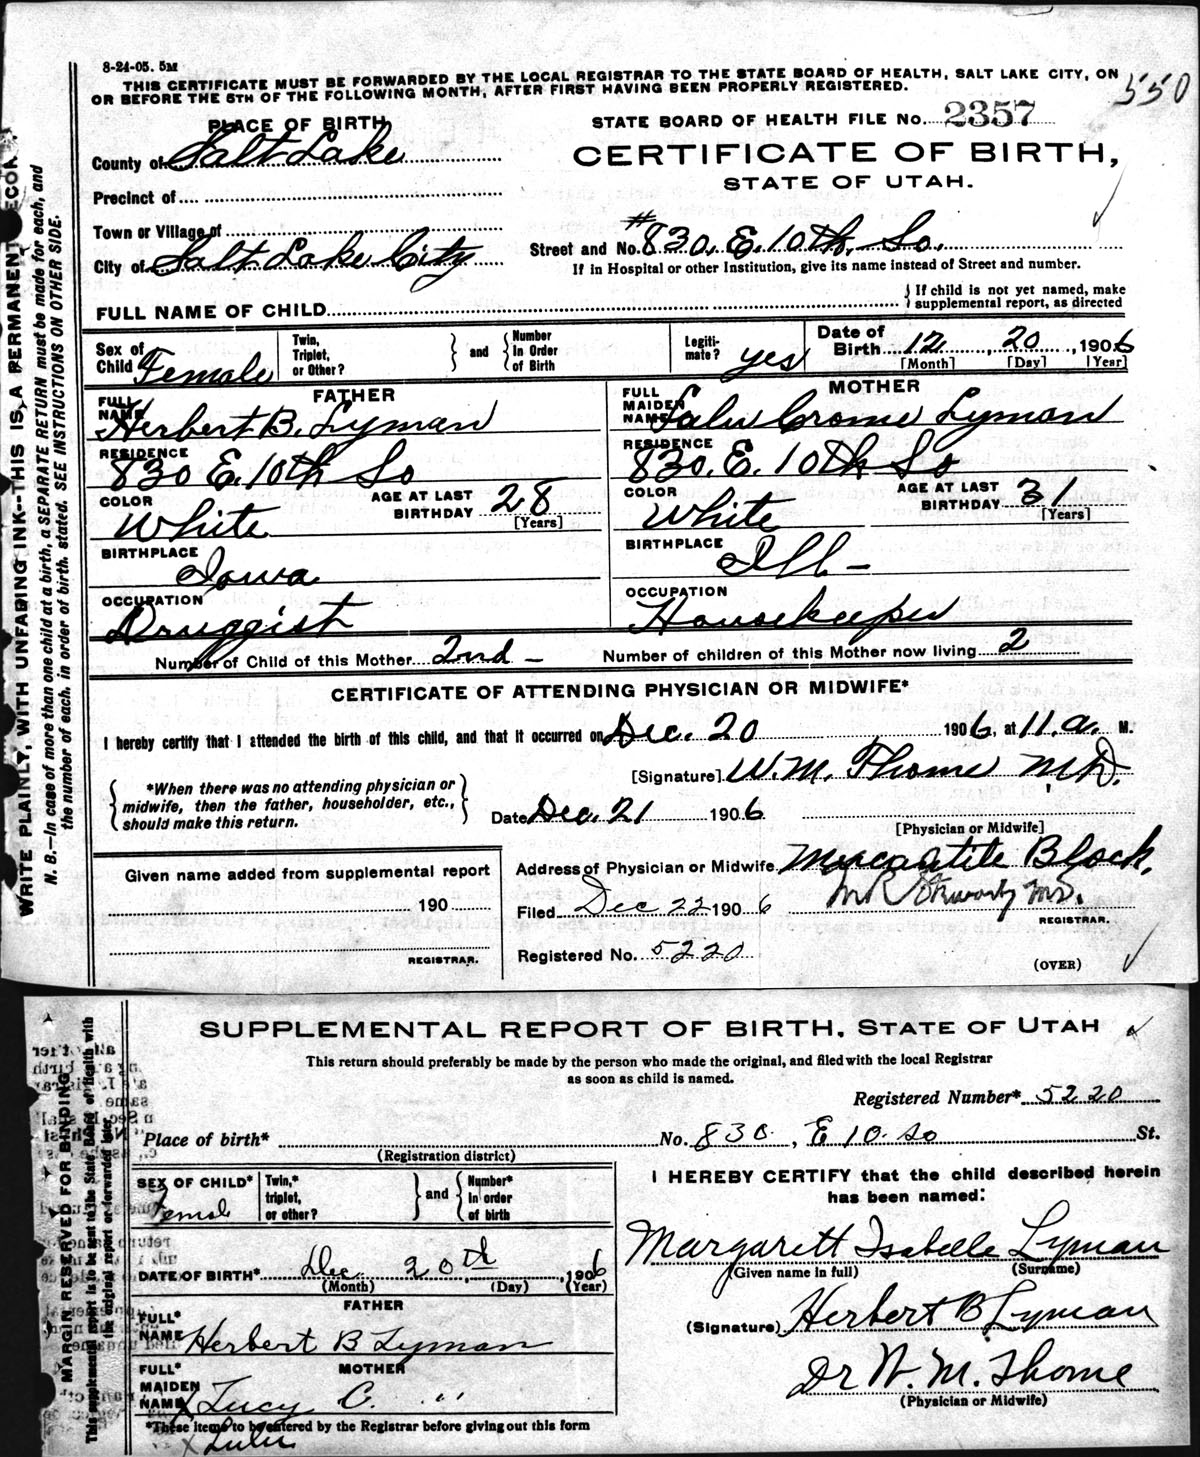 8-24-05. 5M
THIS CERTIFICATE MUST BE FORWARDED BY THE LOCAL REGISTRAR TO THE STATE BOARD OF HEALTH, SALT LAKE CITY, ON
OR BEFORE THE 5TH OF THE FOLLOWING MONTH, AFTER FIRST HAVING BEEN PROPERLY REGISTERED.
550
PLACE OF BIRTH
STATE BOARD OF HEALTH FILE No. 2357
County of Salt Lake
CERTIFICATE OF BIRTH,
STATE OF UTAH.
Precinct of
Town or Village of
City of Salt Lake City
Street and No. #830. E. 10th. So.
If in Hospital or other Institution, give its name instead of Street and number.
FULL NAME OF CHILD
If child is not yet named, make
supplemental report, as directed
Sex of Child Female
Twin, Triplet, or Other?
and
Number In Order of Birth
Legiti-mate? yes
Date of Birth 12, 20, 1906
[Month] [Day] [Year]
FATHER
MOTHER
FULL NAME Herbert B. Lyman
FULL MAIDEN NAME Lulu Crome Lyman
RESIDENCE 830 E. 10th So
RESIDENCE 830. E. 10th So
COLOR White
AGE AT LAST BIRTHDAY 28 [Years]
COLOR White
AGE AT LAST BIRTHDAY 31 [Years]
BIRTHPLACE Iowa
BIRTHPLACE Ill -
OCCUPATION Druggist
OCCUPATION Housekeeper
Number of Child of this Mother 2nd -
Number of children of this Mother now living 2
CERTIFICATE OF ATTENDING PHYSICIAN OR MIDWIFE*
I hereby certify that I attended the birth of this child, and that it occurred on Dec. 20 1906, at 11. a. M.
*When there was no attending physician or
midwife, then the father, householder, etc.,
should make this return.
[Signature] W. M. Thome M.D.
Date Dec. 21 1906
[Physician or Midwife]
Given name added from supplemental report
190
REGISTRAR.
Address of Physician or Midwife Mercantile Block.
Filed Dec 22 1906
M R Stewart M.D.
REGISTRAR.
Registered No. 5220
(OVER)
WRITE PLAINLY, WITH UNFADING INK--THIS IS A PERMANENT RECOR
N. B.—In case of more than one child at a birth, a SEPARATE RETURN must be made for each, and
the number of each, in order of birth, stated. SEE INSTRUCTIONS ON OTHER SIDE.
SUPPLEMENTAL REPORT OF BIRTH, STATE OF UTAH
This return should preferably be made by the person who made the original, and filed with the local Registrar
as soon as child is named.
Registered Number* 5220
Place of birth* No. 830, E 10. So St.
(Registration district)
SEX OF CHILD* Female
Twin,* triplet, or other?
and
Number* In order of birth
I HEREBY CERTIFY that the child described herein
has been named:
Margarett Isabelle Lyman
(Given name in full) (Surname)
DATE OF BIRTH* Dec 20th, 1906
(Month) (Day) (Year)
FATHER
FULL* NAME Herbert B Lyman
(Signature) Herbert B Lyman
MOTHER
FULL* MAIDEN NAME x Lucy C. "
Dr W. M. Thome
(Physician or Midwife)
*These items to be entered by the Registrar before giving out this form
x Lulu
MARGIN RESERVED FOR BINDING
This supplemental report is to be sent to the State Board of Health with
the original report or forwarded later.